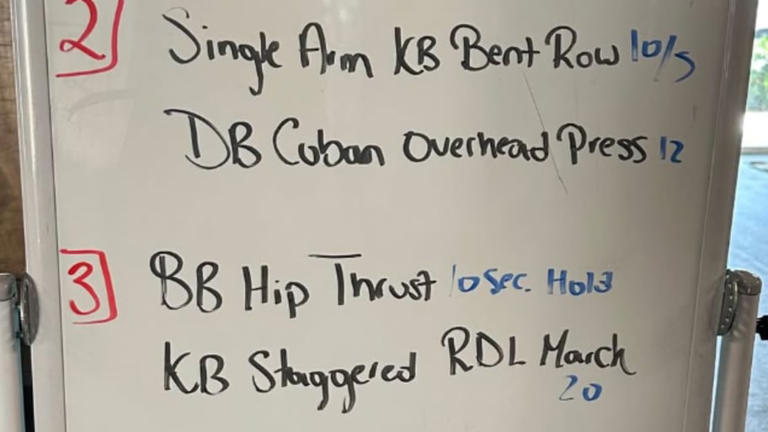 2 Single Arm KB Bent Row 10/s
DB Cuban Overhead Press 12
3 BB Hip Thrust 10 Sec. Hold
KB Staggered RDL March
20